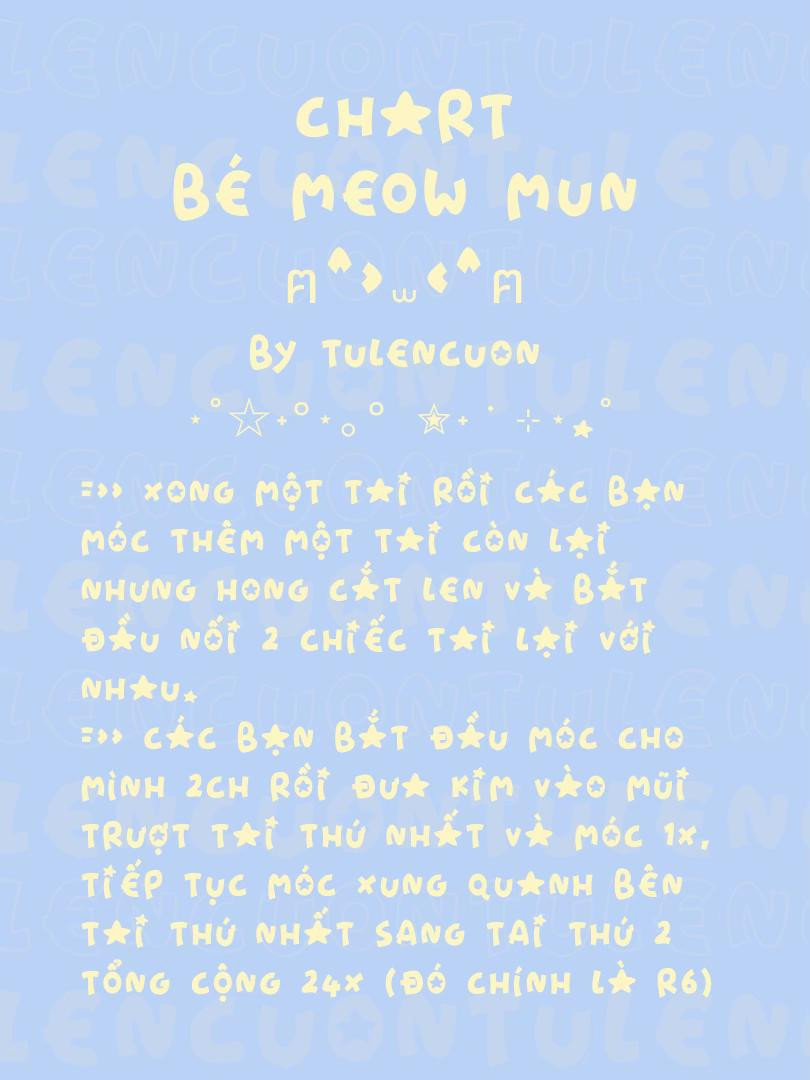 CHART
BÉ MEOW MUN
BY TULENCUON
=>> XONG MỘT TAI RỒI CÁC BẠN
MÓC THÊM MỘT TAI CÒN LẠI
NHƯNG HONG CẮT LEN VÀ BẮT
ĐẦU NỐI 2 CHIẾC TAI LẠI VỚI
NHAU.
=>> CÁC BẠN BẮT ĐẦU MÓC CHO
MÌNH 2CH RỒI ĐƯA KIM VÀO MŨI
TRƯỢT TAI THỨ NHẤT VÀ MÓC 1X,
TIẾP TỤC MÓC XUNG QUANH BÊN
TAI THỨ NHẤT SANG TAI THỨ 2
TỔNG CỘNG 24X (ĐÓ CHÍNH LÀ R6)